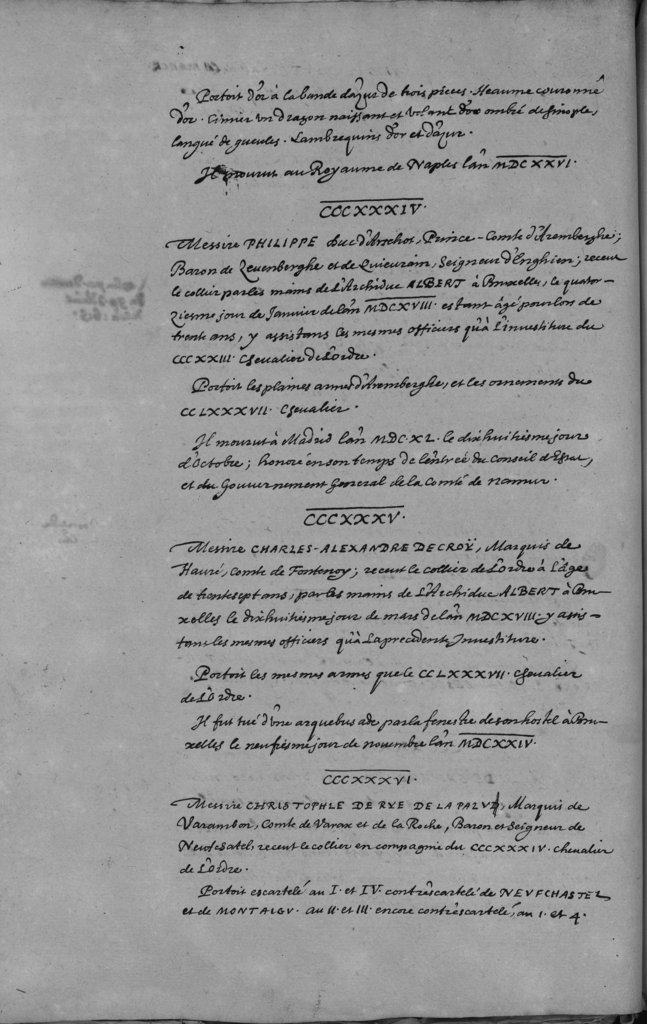 Portoit d'or à la bande d'azur de trois pieces. Heaume couronné
d'or. Cimier un dragon naissant et volant d'or ombré de sinople,
langué de gueules. Lambrequins d'or et d'azur.
Il mourut au Royaume de Naples l'añ MDCXXVI.
CCCXXXIV.
Messire PHILIPPE duc d'Arschot, Prince-Comte d'Aremberghe;
Baron de Zevenberghe et de Quievrain, Seigneur d'Enghien; receut
le collier par les mains de L'Archiduc ALBERT à Bruxelles, le quator-
ziesme jour de Janvier de l'añ MDCXVIII. estant âgé pour lors de
trente ans, y assistans les mesmes officiers qu'à L'investiture du
CCCXXIII. Chevalier de L'ordre.
Portoit les plaines armes d'Aremberghe, et les ornements du
CCLXXXVII. Chevalier.
Il mourut à Madrid l'añ MDC.XL. le dixhuitiesme jour
d'Octobre; honoré en son temps de l'entreé du Conseil d'Estat,
et du Gouvernement General de la Comté de Namur.
CCCXXXV.
Messire CHARLES-ALEXANDRE DE CROŸ, Marquis de
Hauré, Comte de Fontenoy; receut le collier de L'ordre à L'âge
de trentesept ans; par les mains de L'Archiduc ALBERT à Bru-
xelles le dixhuitiesme jour de mars de l'añ MDCXVIII. y assis-
tans les mesmes officiers qu'à La precedente Investiture.
Portoit les mesmes armes que le CCLXXXVII. Chevalier
de L'ordre.
Il fut tué d'une arquebusade par la fenestre de son hostel à Bru-
xelles le neufiesme jour de novembre l'añ MDCXXIV.
CCCXXXVI.
Messire CHRISTOPHLE DE RYE DE LA PALUD, Marquis de
Varambon, Comte de Varax et de la Roche, Baron et Seigneur de
Neufchatel, receut le collier en compagnie du CCCXXXIV. chevalier
de L'ordre.
Portoit escartelé au I. et IV. contrescartelé de NEUFCHASTEL
et de MONTAIGU. au II. et III. encore contrescartelé, au 1. et 4.